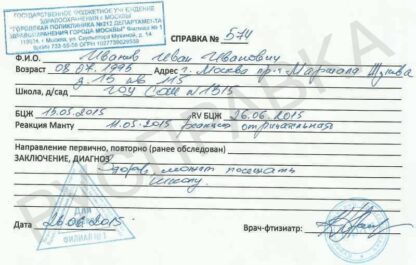 ГОСУДАРСТВЕННОЕ БЮДЖЕТНОЕ УЧРЕЖДЕНИЕ
ЗДРАВООХРАНЕНИЯ г.МОСКВЫ
"ГОРОДСКАЯ ПОЛИКЛИНИКА №212 ДЕПАРТАМЕНТА
ЗДРАВООХРАНЕНИЯ ГОРОДА МОСКВЫ" Филиал № 1
г. Москва, ул. Скульптора Мухиной, д. 14
СПРАВКА № 574
Ф.И.О. Иванов Иван Иванович
Возраст 08.07.1995 Адрес г. Москва пр-т Маршала Жукова
д. 15 кв 115
Школа, д/сад ГОУ СОШ №1315
БЦЖ 13.05.2015 RV БЦЖ 26.06.2015
Реакция Манту 11.05.2015 реакция отрицательная
Направление первично, повторно (ранее обследован)
ЗАКЛЮЧЕНИЕ, ДИАГНОЗ
Здоров, может посещать
школу.
ДЛЯ
ФИЛИАЛ №1
Дата 26.06.2015.
Врач-фтизиатр:
РУССПРАВКА